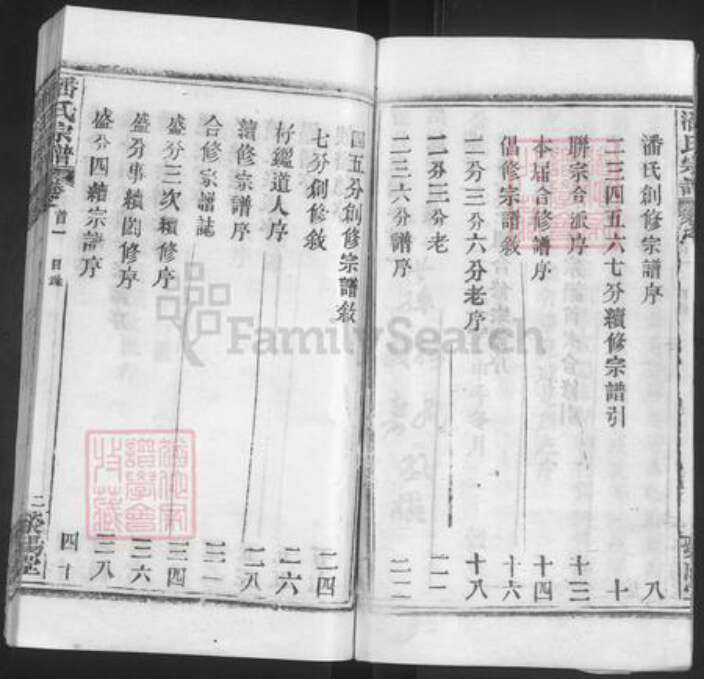 潘氏創修宗譜序 八
二三四五六七分續修宗譜引 十
聯宗合派序 十三
本届合修譜序 十四
倡修宗譜敘 十六
二分三分六分老序 十八
二分三分老
二三六分譜序 二二
四五分創修宗譜敘 二四
七分創修敘
竹繼道人序 二六
續修宗譜序 二八
合修宗譜誌 三一
盛分三次續修序 三四
盛分專續圖修序 三六
盛分四續宗譜序 三八
四十
潘氏宗譜 卷首一 目錄 二 滎陽堂
FamilySearch